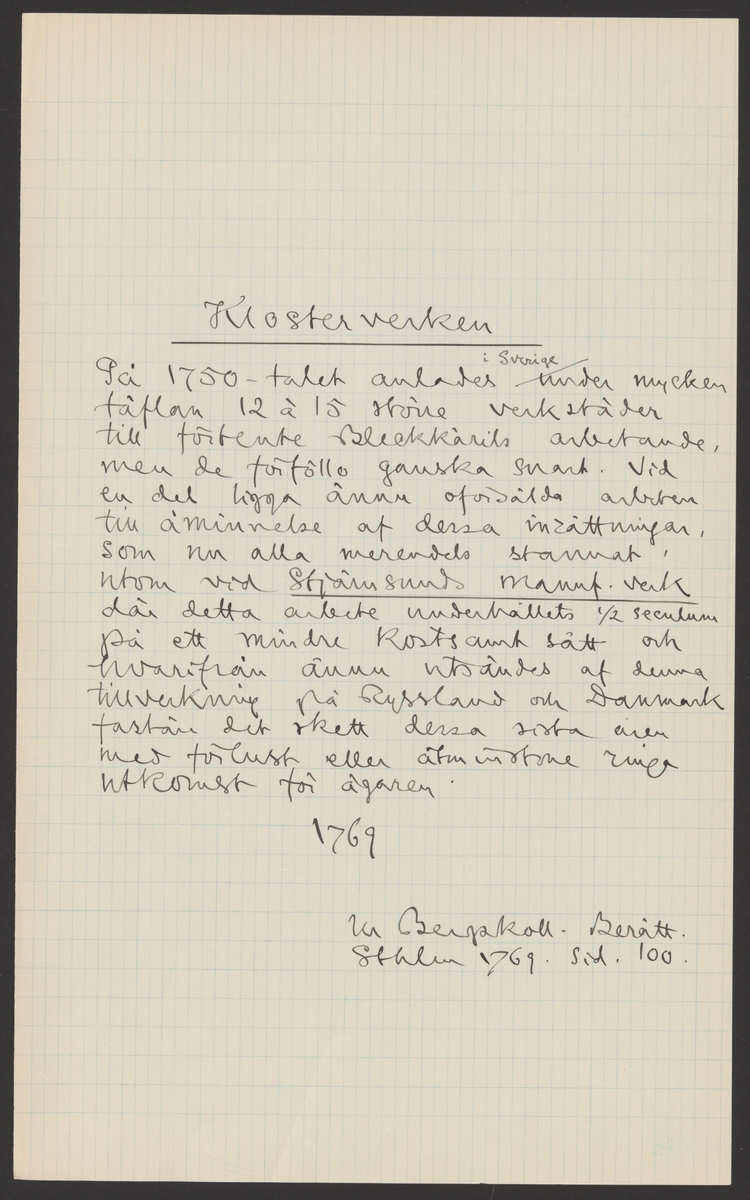 Klosterverken
i Sverige
På 1750-talet anlades under mycken
täflan 12 à 15 större verkstäder
till förtente Bleckkärils arbetande,
men de förföllo ganska snart. Vid
en del ligga ännu oforsålda arbeten
till åminnelse af dessa inrättningar,
som nu alla merendels stannat,
utom vid Stjärnsunds Manuf. verk
där detta arbete underhållets 1/2 seculum
på ett mindre kostsamt sätt och
hvarifrån ännu utsändes af denna
tillverkning på Ryssland och Danmark
fastän det skett dessa sista åren
med förlust eller åtminstone ringa
utkomst för ägaren.
1769
Ur Bergskoll. Berätt.
Sthlm 1769. Sid. 100.